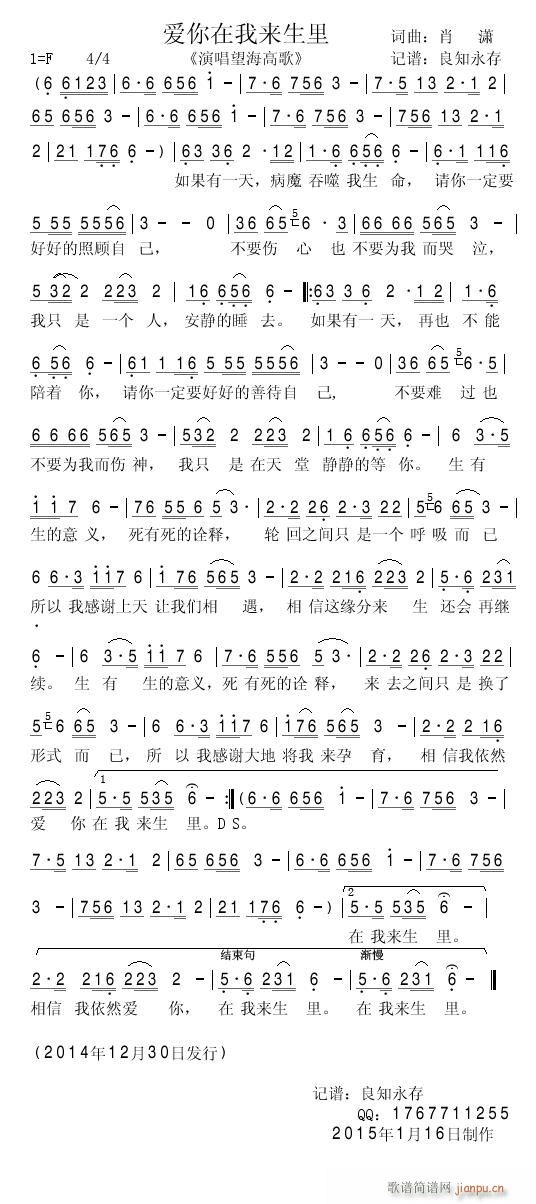 爱你在我来生里
词曲：肖 潇
1=F 4/4 《演唱望海高歌》 记谱：良知永存
(6 6123 | 6·6 656 i - | 7·6 756 3 - | 7·5 13 2·1
65 656 3 - | 6·6 656 i - | 7·6 756 3 - | 756 13 2·1
2 | 21 176 6 -) | 63 36 2 ·12 | 1·6 656 6 - | 6·1 116
如果有一天，病魔 吞噬 我生 命， 请你一定要
5 55 5556 | 3 - - 0 | 36 65 5 6 · 3 | 66 66 565 3 - |
好好的照顾自 己， 不要伤 心 也 不要为我 而哭 泣，
5 32 2 223 2 | 16 656 6 - |: 63 3 6 2 ·1 2 | 1·6
我只 是 一个 人， 安静的睡 去。 如果有一 天，再也 不 能
6 56 6 - | 61 1 16 5 55 5556 | 3 - - 0 | 36 65 5 6·5
陪着 你， 请你一定要好好的善待自 己， 不要难 过也
6 6 66 565 3 - | 532 2 223 2 | 1 6 656 6 - | 6 3·5
不要为我而伤 神， 我只 是 在天 堂 静静的等 你。 生 有
i i 7 6 - | 76 55 6 53 - | 2·2 26 2·3 22 | 5 5 6 65 3 - |
生的意 义， 死有死的诠释， 轮 回之间只 是一个 呼 吸而 已
6 6·3 i i7 6 | 176 565 3 - | 2·2 216 223 2 | 5·6 231
所以 我感谢上天 让我们相 遇， 相 信这缘分来 生 还会 再继
6 - | 6 3·5 i i 7 6 | 7·6 556 5 3 - | 2·2 2·3 22 |
续。 生 有 生的意义，死 有死的诠 释， 来 去之间只 是 换了
5 5 6 65 3 - | 6 6·3 i i7 6 | 176 565 3 - | 2·2 2 16
形式 而 已，所 以 我感谢大地 将我 来孕 育， 相 信我依然
223 2 | 1 5·5 535 6 - :‖ (6·6 656 i - | 7·6 756 3 - |
爱 你 在 我 来生 里。D S。
7·5 13 2·1 2 | 65 656 3 - | 6·6 656 i - | 7·6 756
3 - | 756 13 2·1 2 | 21 176 6 -) | 2 5·5 535 6 - |
在 我来生 里。
结束句 渐慢
2·2 216 223 2 | 5·6 231 6 - | 5·6 231 6 - ‖
相信 我依然爱 你， 在 我来生 里。 在 我来生 里。
(2014年12月30日发行)
记谱：良知永存
QQ：1767711255
2015年1月16日制作
歌谱简谱网
jianpu.cn